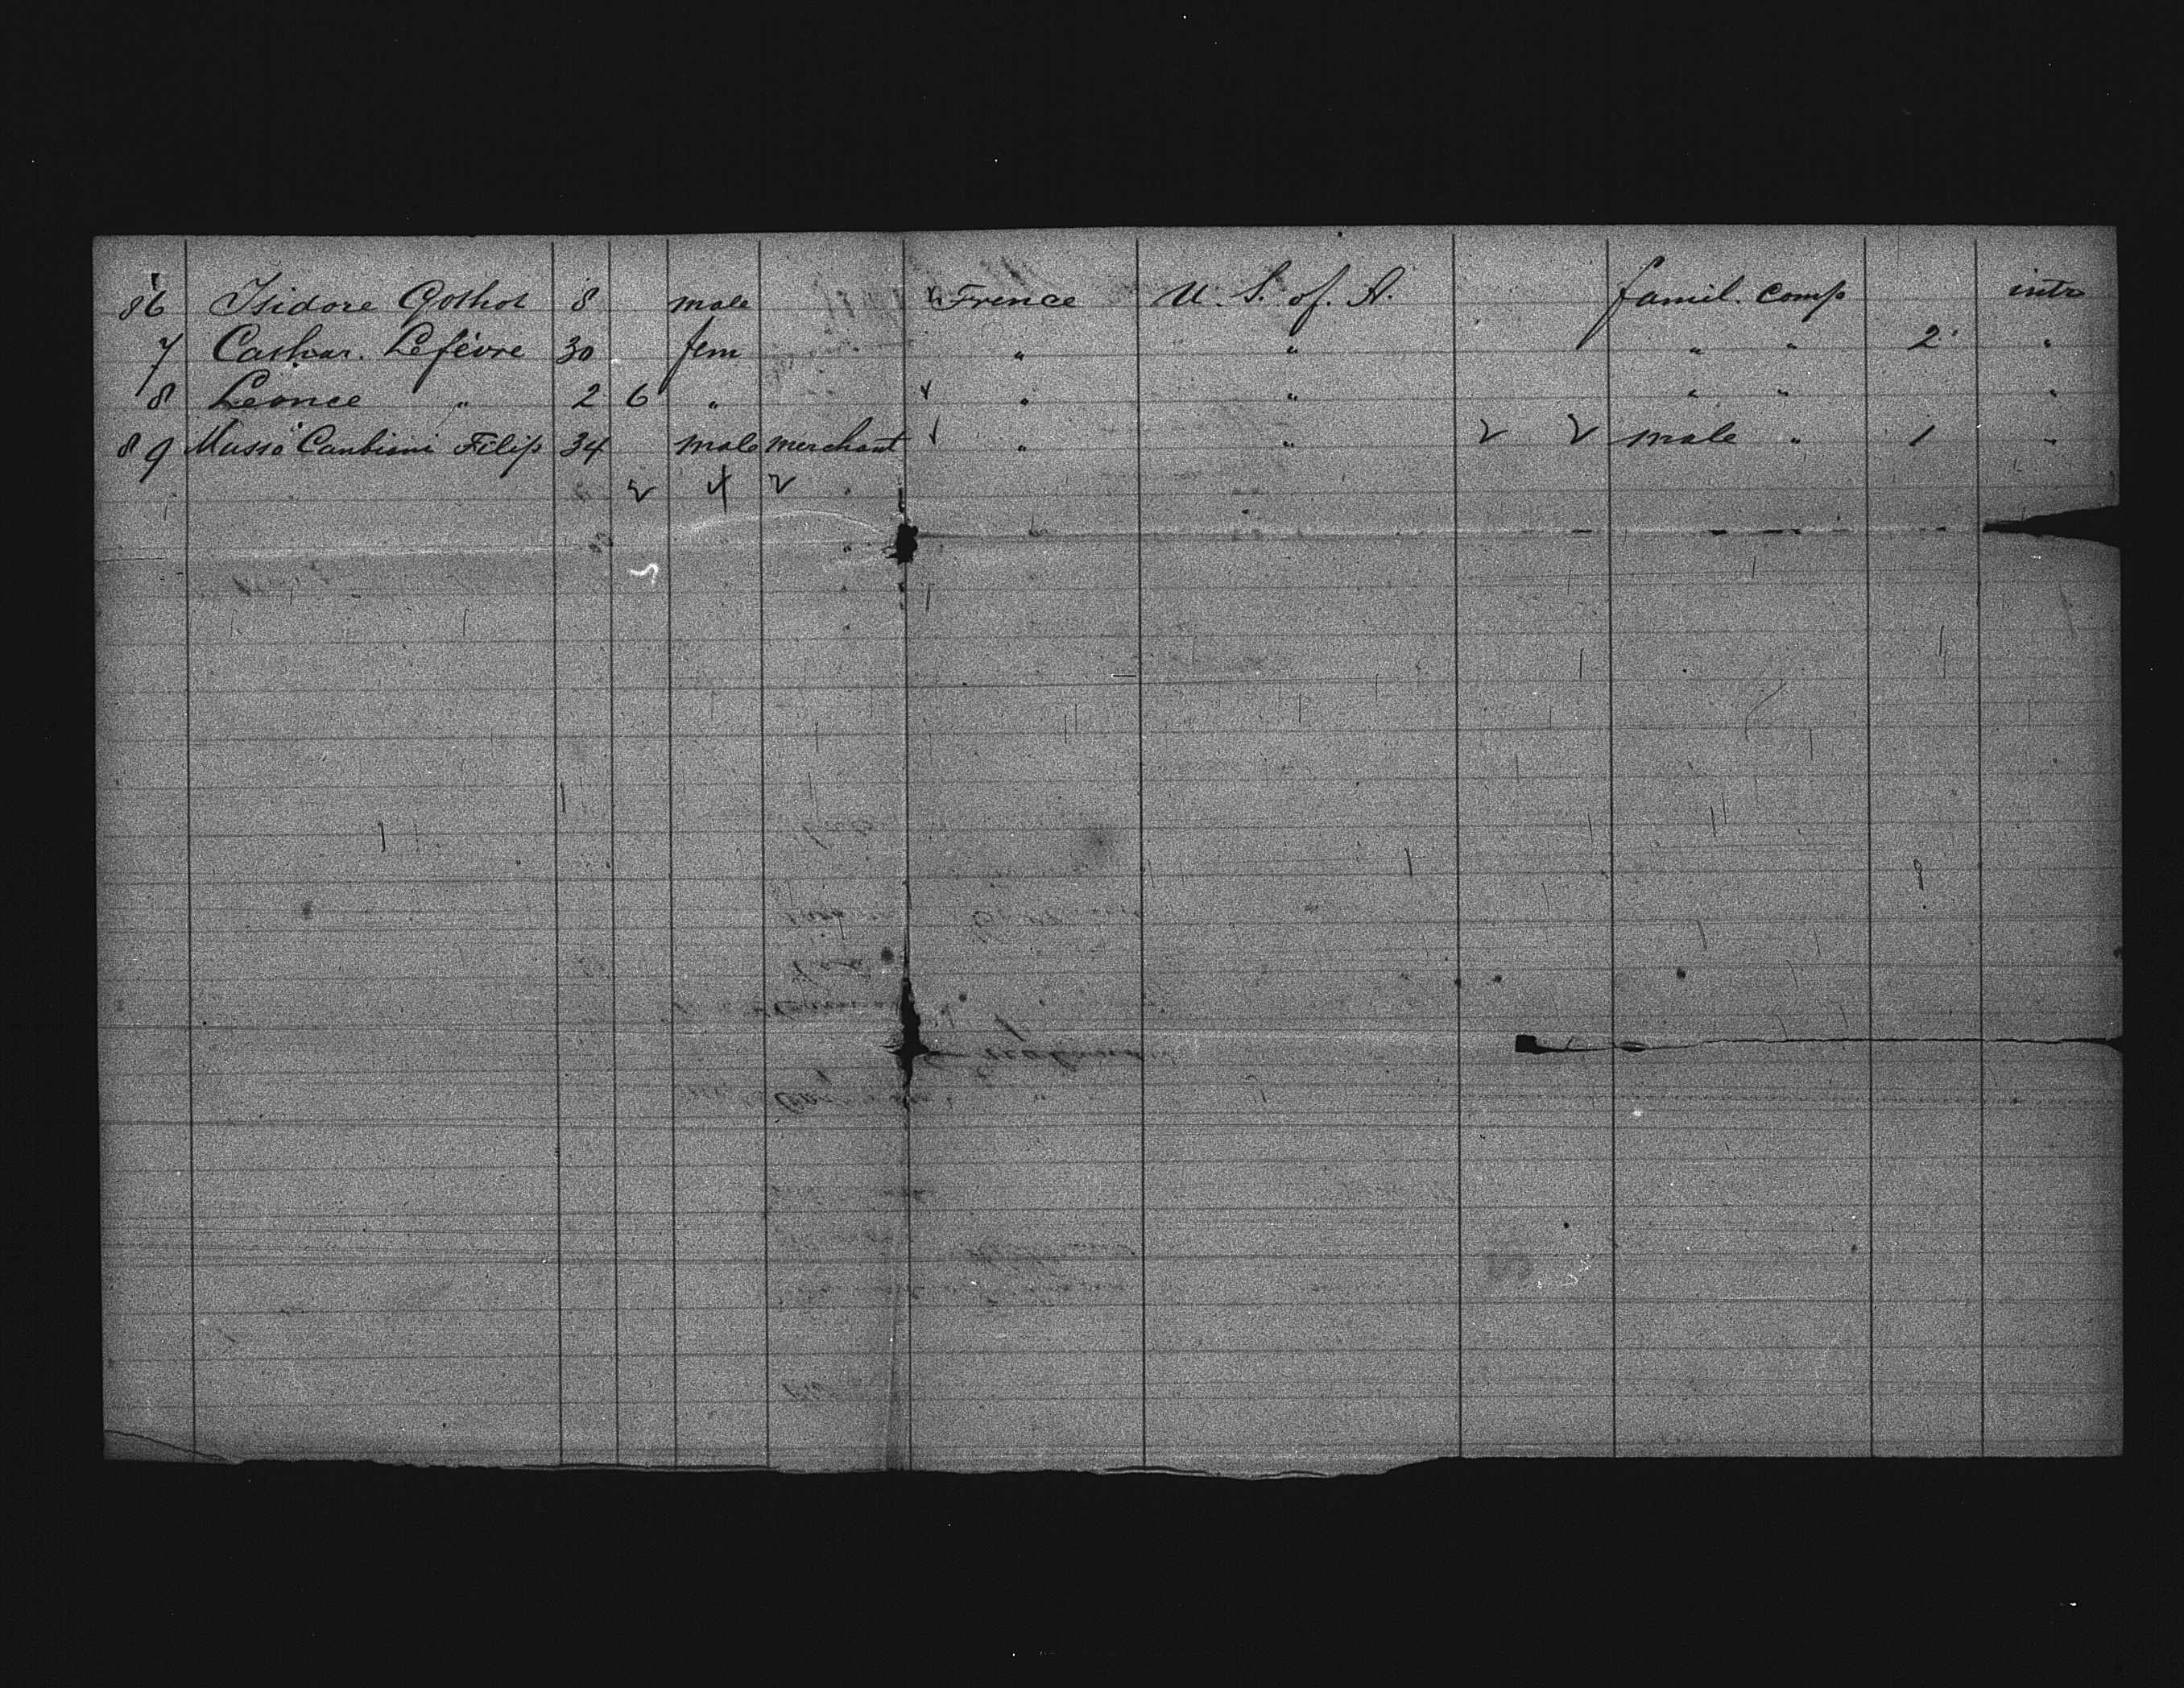 86 Isidore Gothot 8 male Frence U. S. of. A. famil. comp intr
7 Cathar. Lefèvre 30 fem " " " " 2 "
8 Léonce " 2 6 " " " " " "
89 Musso Canbiani Filip 34 male merchant " " male " 1 "